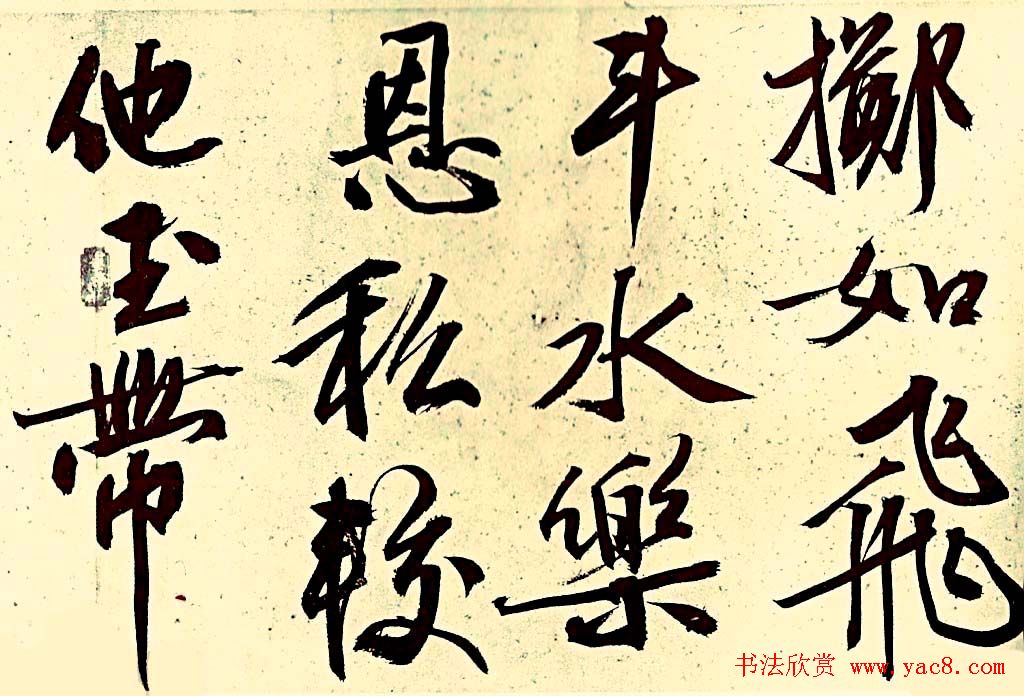 擲如飛
斗水樂
恩私較
他玉帶
书法欣赏 www.yac8.com